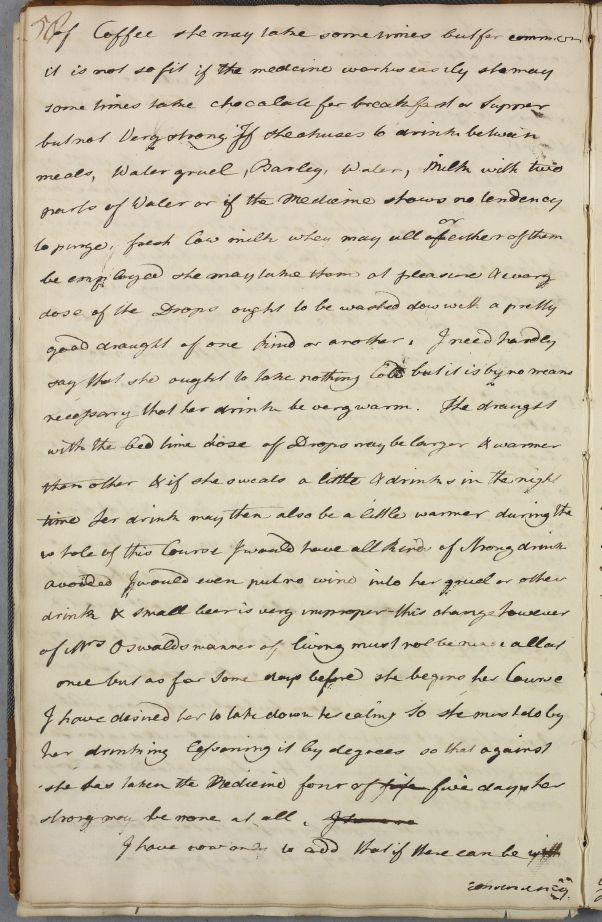 of Coffee she may take sometimes but for common
it is not so fit if the medecine works easily she may
some times take chocalate for breakfast or Supper
but not Very strong. If she chuses to drink between
meals, Water gruel, Barley, Water, Milk with two
parts of Water or if the Medicine shows no tendency
to purge, fresh Cow milk whey may all or either of them
be employed she may take them at pleasure & every
dose of the Drops ought to be washed down with a pretty
good draught of one kind or another. I need hardly
say that she ought to take nothing Cold but it is by no means
necessary that her drink be very warm. The draught
with the bed time dose of Drops may be larger & warmer
than other & if she sweats a little & drinks in the night
time her drink may then also be a little warmer during the
whole of this Course I would have all kind of strong drink
avoided I would even put no wine into her gruel or other
drink & small beer is very improper this change however
of Mrs Oswalds manner of living must not be made all at
once but as for some days before she begins her Course
I have desired her to take down her eating So she must do by
her drinking Lessoning it by degrees so that against
she has taken the Medicine four or five days her
strong may be none at all.
I have now only to add that if there can be
conveniency